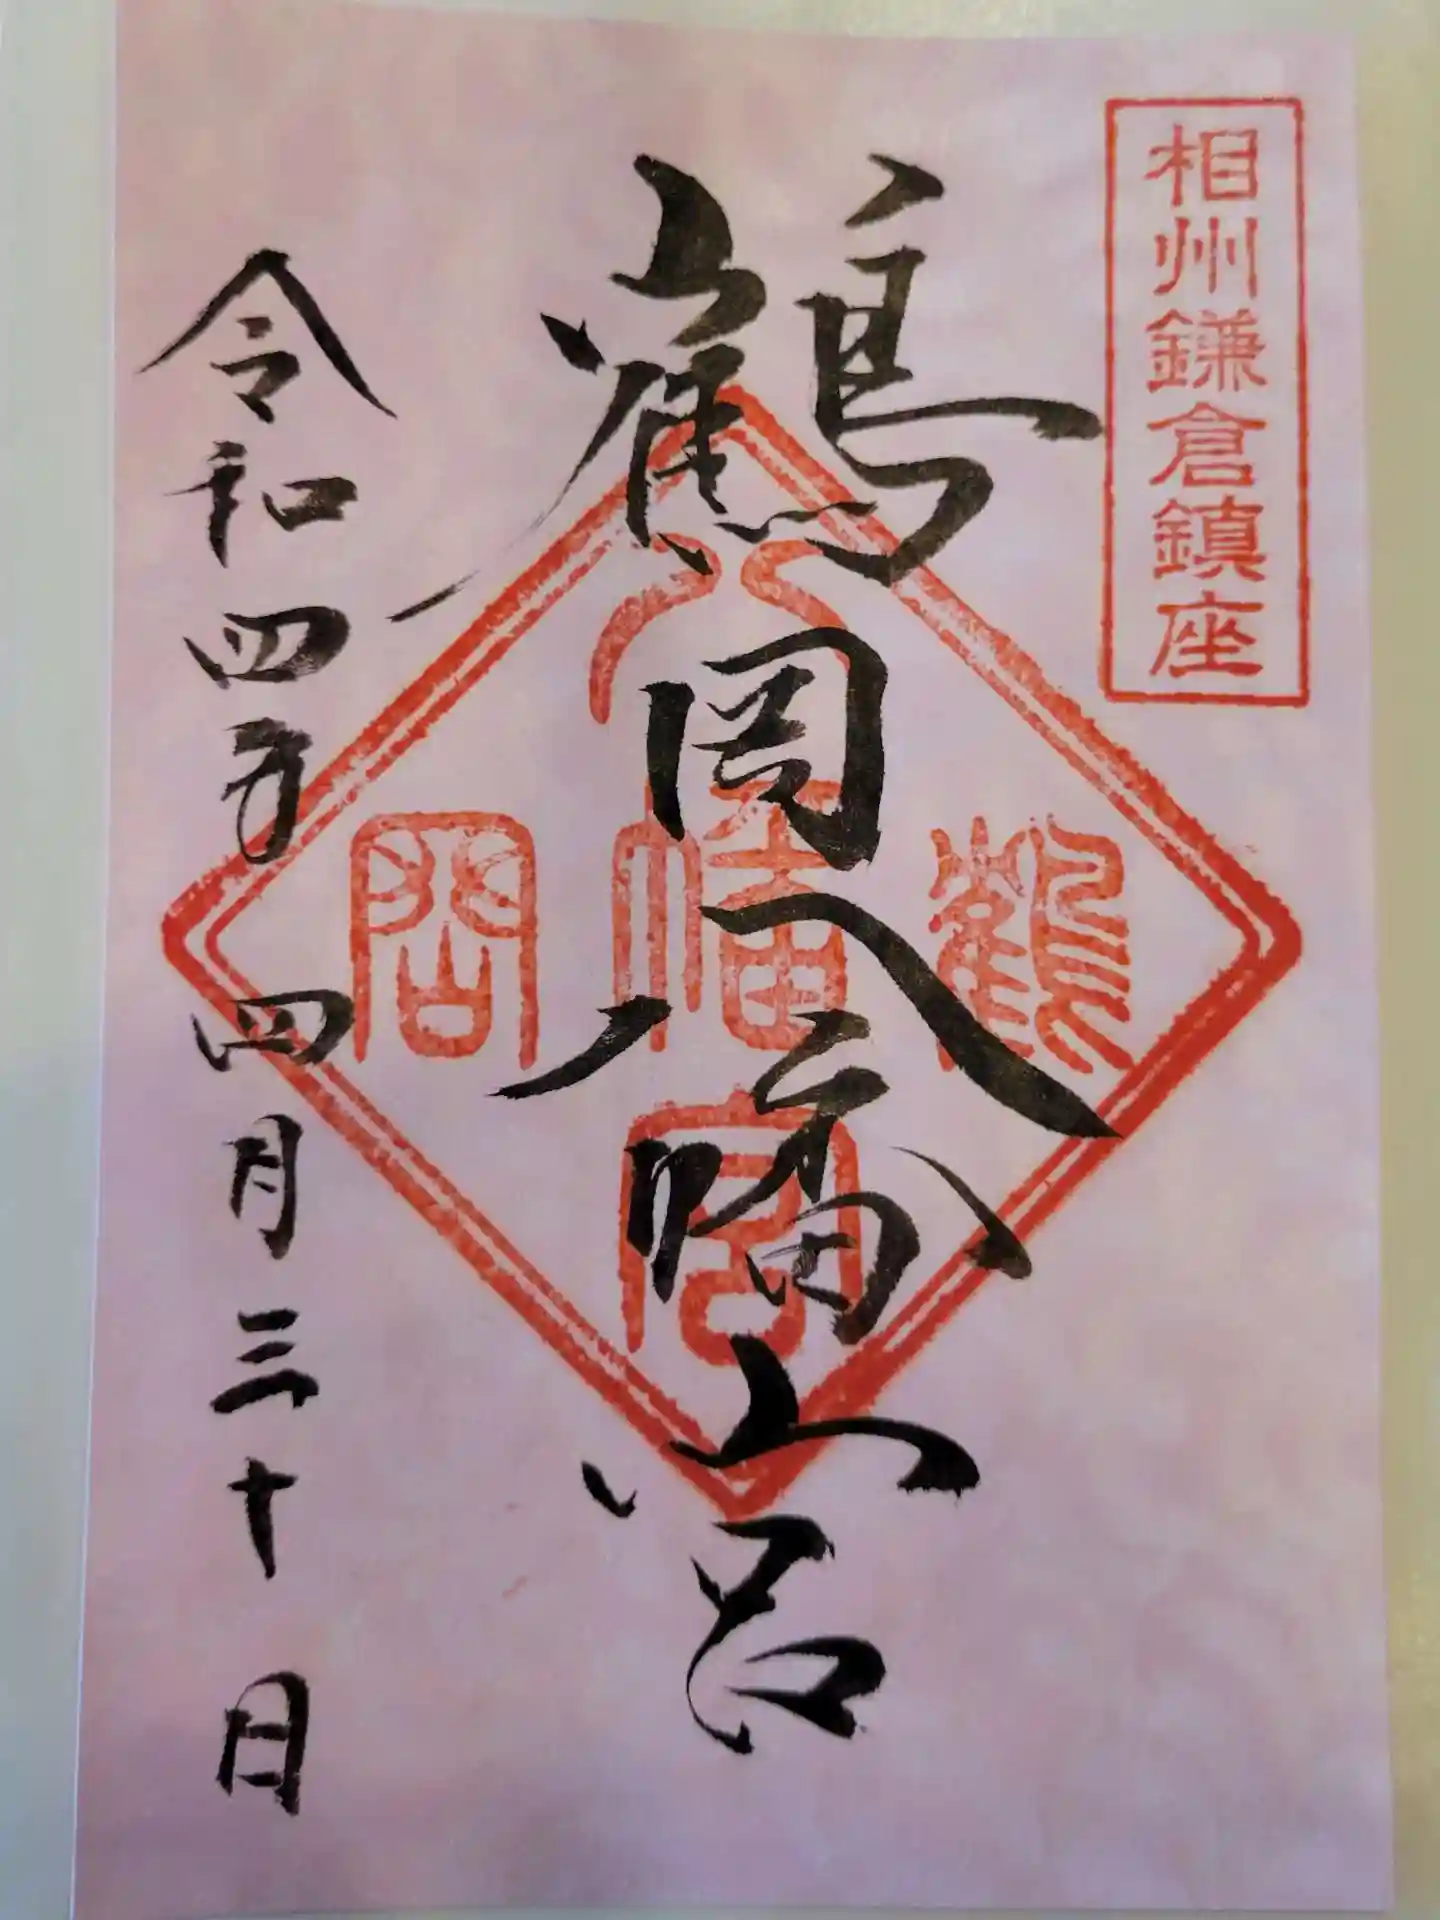 相州鎌倉鎮座
鶴岡八幡宮
鶴
八幡宮
岡
令和四年四月三十日